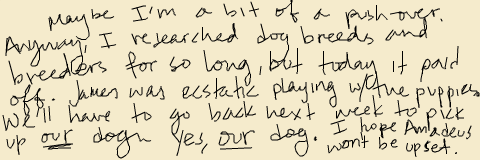 Maybe I'm a bit of a push-over.
Anyway, I researched dog breeds and
breeders for so long, but today it paid
off. James was ecstatic playing w/the puppies
We'll have to go back next week to pick
up our dog. Yes, our dog. I hope Amadeus
won't be upset.